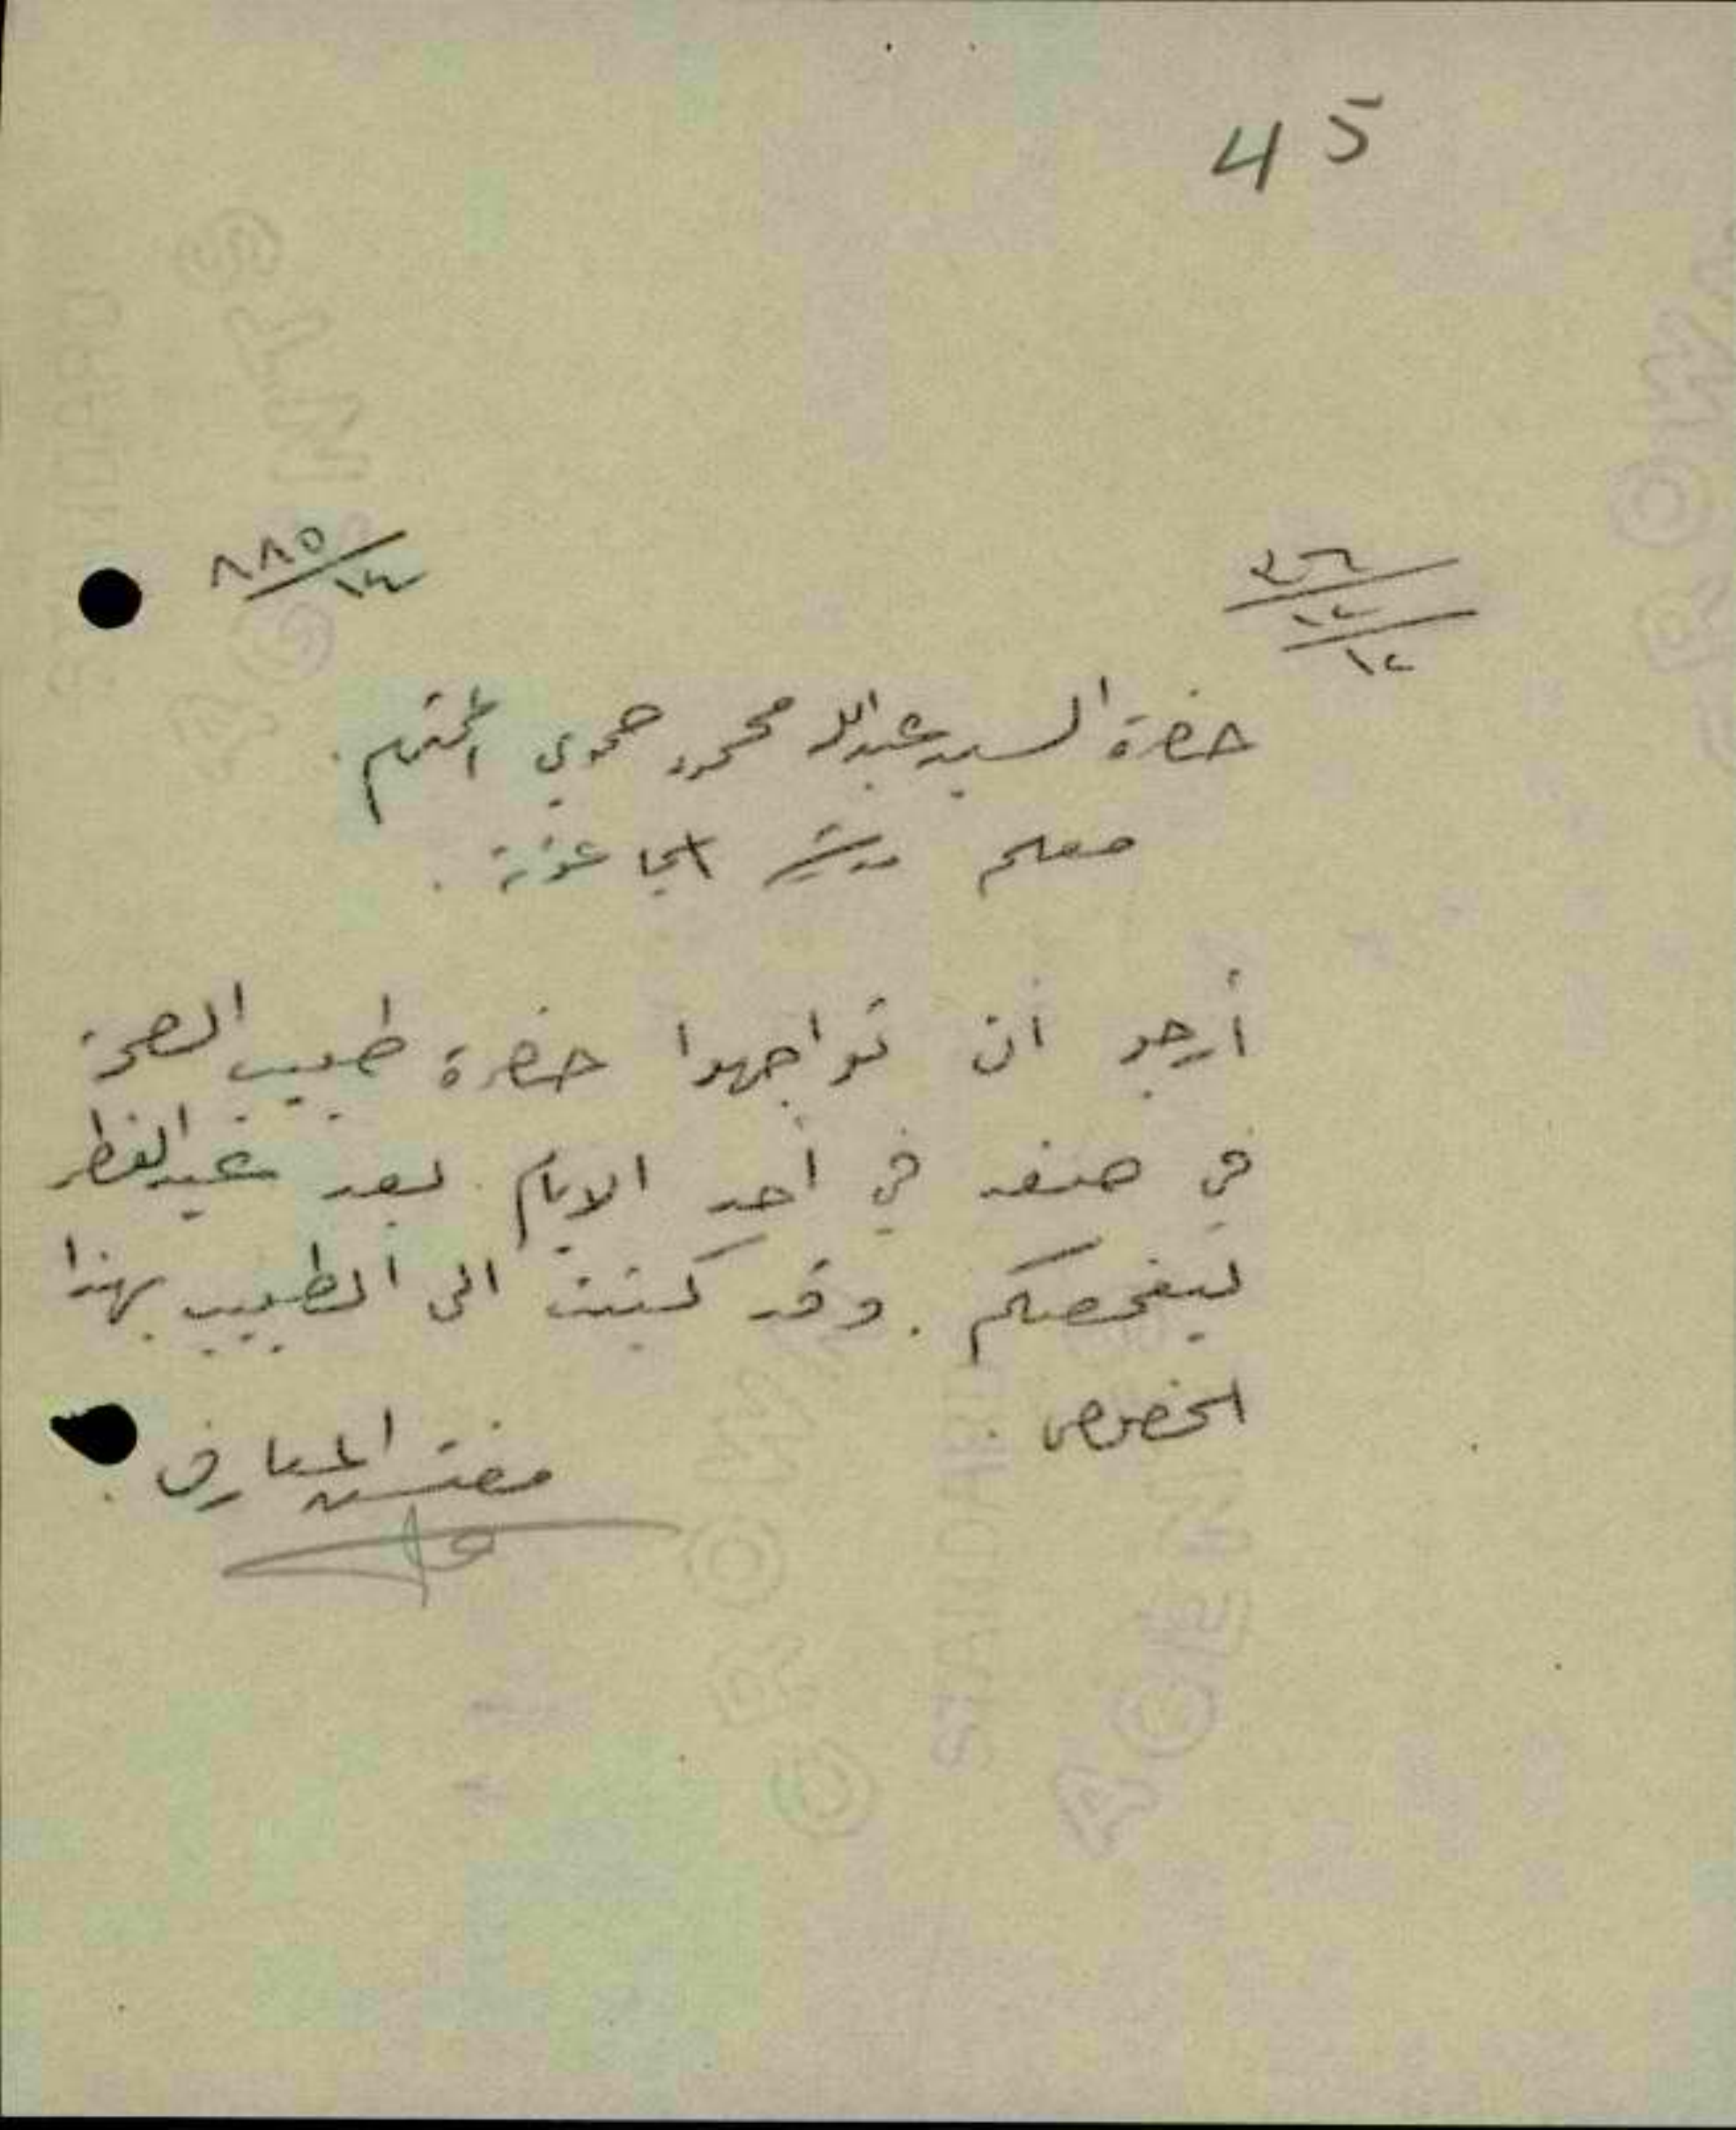 45
٨٨٥/١٤
٩٣٦/١٢/١٢
حضرة السيد عبدالله محمود حموي المحترم.
معلم مدرسة الجاعونة.
أرجو ان تواجهوا حضرة طبيب الصحة
في صفد في أحد الايام بعد عيد الفطر
ليفحصكم. وقد كتبت الى الطبيب بهذا
الخصوص.
مفتش المعارف.
CROWN
AGENTS
STANDARD